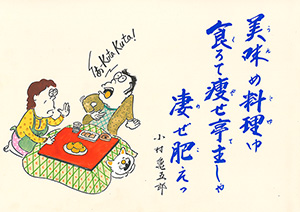 美味め料理ゆ
食ろて痩せ亭主しゃ
凄ぜ肥えっ
小村亀五郎
KutaKuta!